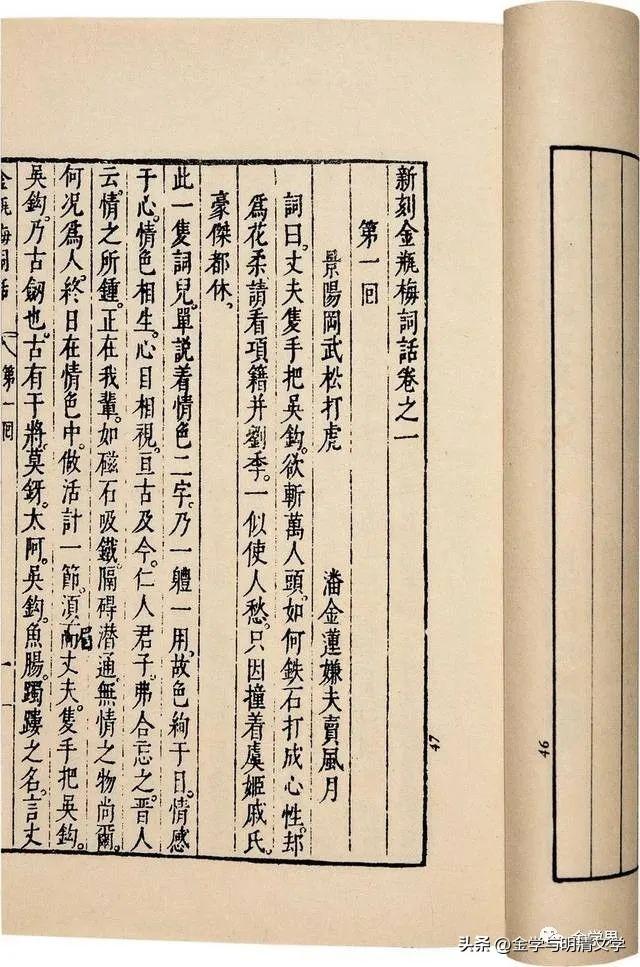 新刻金瓶梅詞話卷之一
第一回
景陽岡武松打虎　潘金蓮嫌夫賣風月
詞曰。丈夫隻手把吳鈎。欲斬萬人頭。如何鉄石打成心性。却
爲花柔。請看項籍并劉季。一似使人愁。只因撞着虞姬戚氏
豪傑都休。
此一隻詞兒。單説着情色二字。乃一體一用。故色絢于目。情感
于心。情色相生。心目相視。亘古及今。仁人君子。弗合忘之。晋人
云。情之所鍾。正在我輩。如磁石吸鐵。隔碍潜通。無情之物尚爾。
何况爲人。終日在情色中。做活計一節。須而丈夫隻手把吳鈎。
吳鈎。乃古劔也。古有干將。莫釾。太阿。吳鈎。魚腸。躅䠱之名。言丈
金瓶梅詞話　第一回　一
47
46
金学界
头条 @金学与明清文学